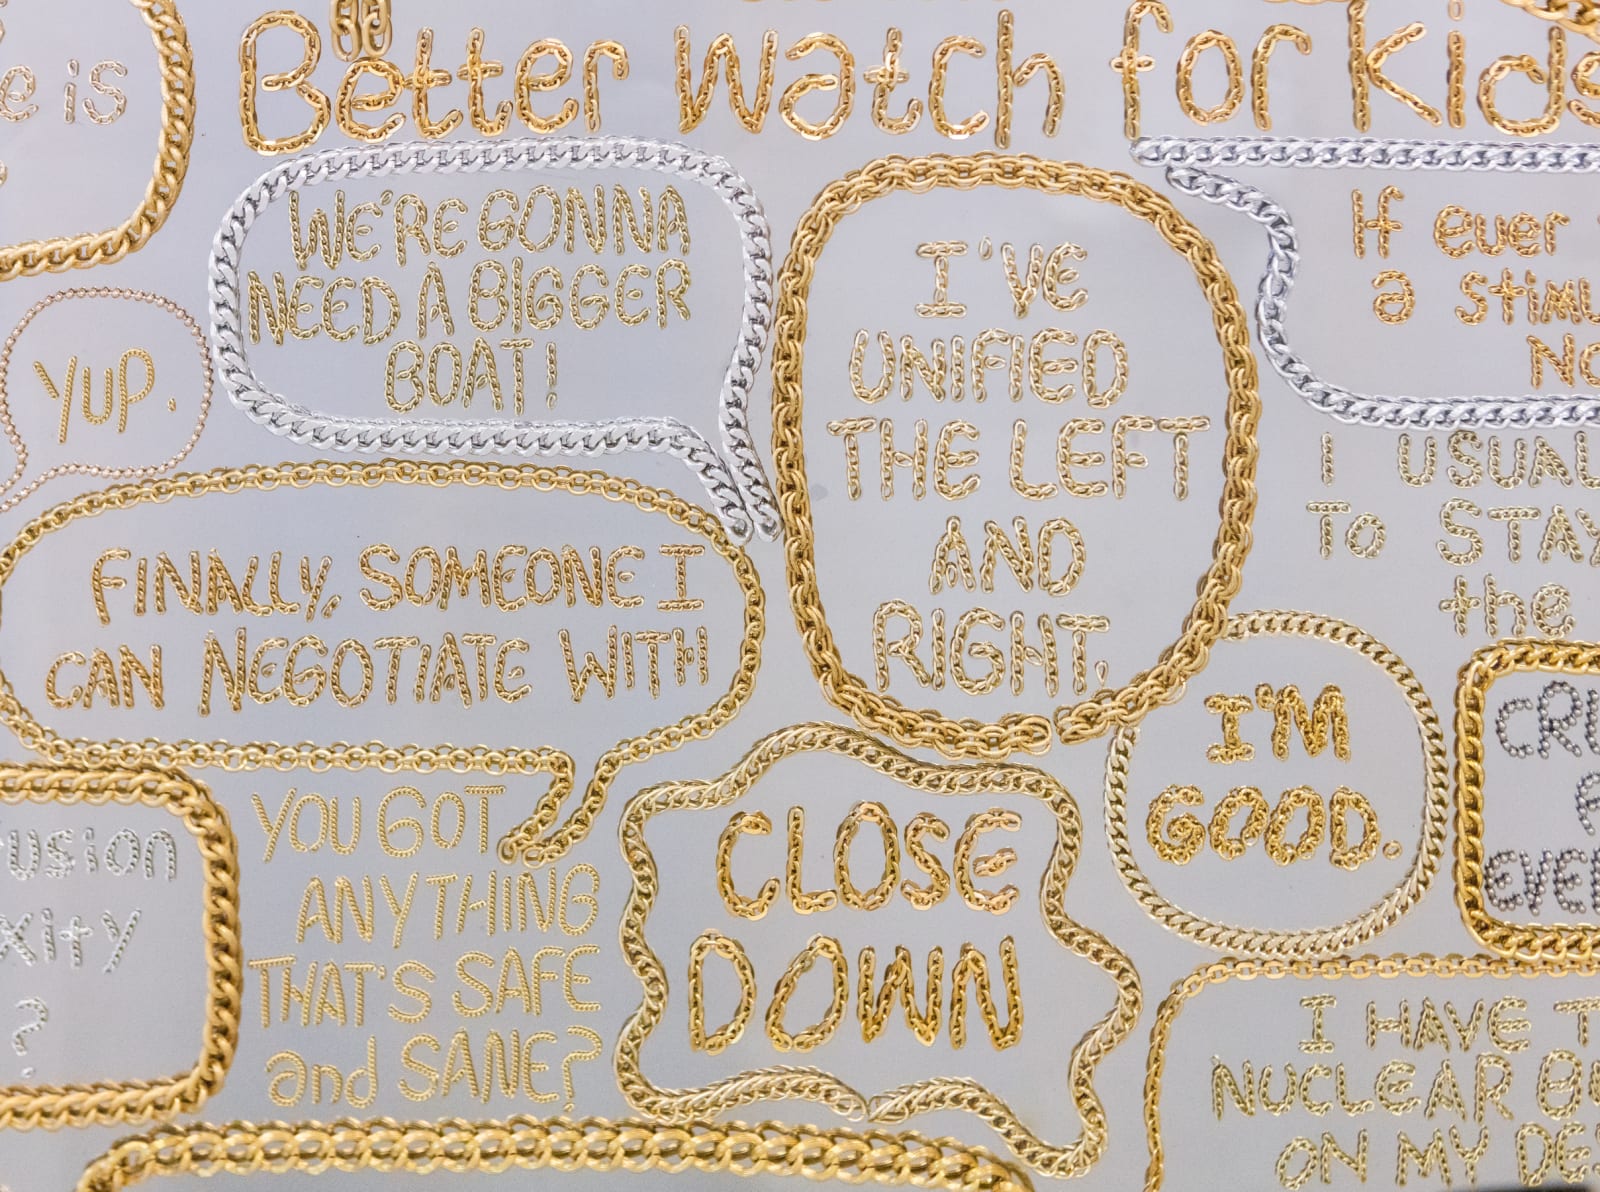 is
Better Watch for Kids
WE'RE GONNA
NEED A BIGGER
BOAT!
I'VE
UNIFIED
THE LEFT
AND
RIGHT.
If ever
a
No
YUP.
I
TO STAY
the
FINALLY, SOMEONE I
CAN NEGOTIATE WITH
I'M
GOOD.
YOU GOT
ANYTHING
THAT'S SAFE
and SANE?
CLOSE
DOWN
?
I HAVE
NUCLEAR
ON MY